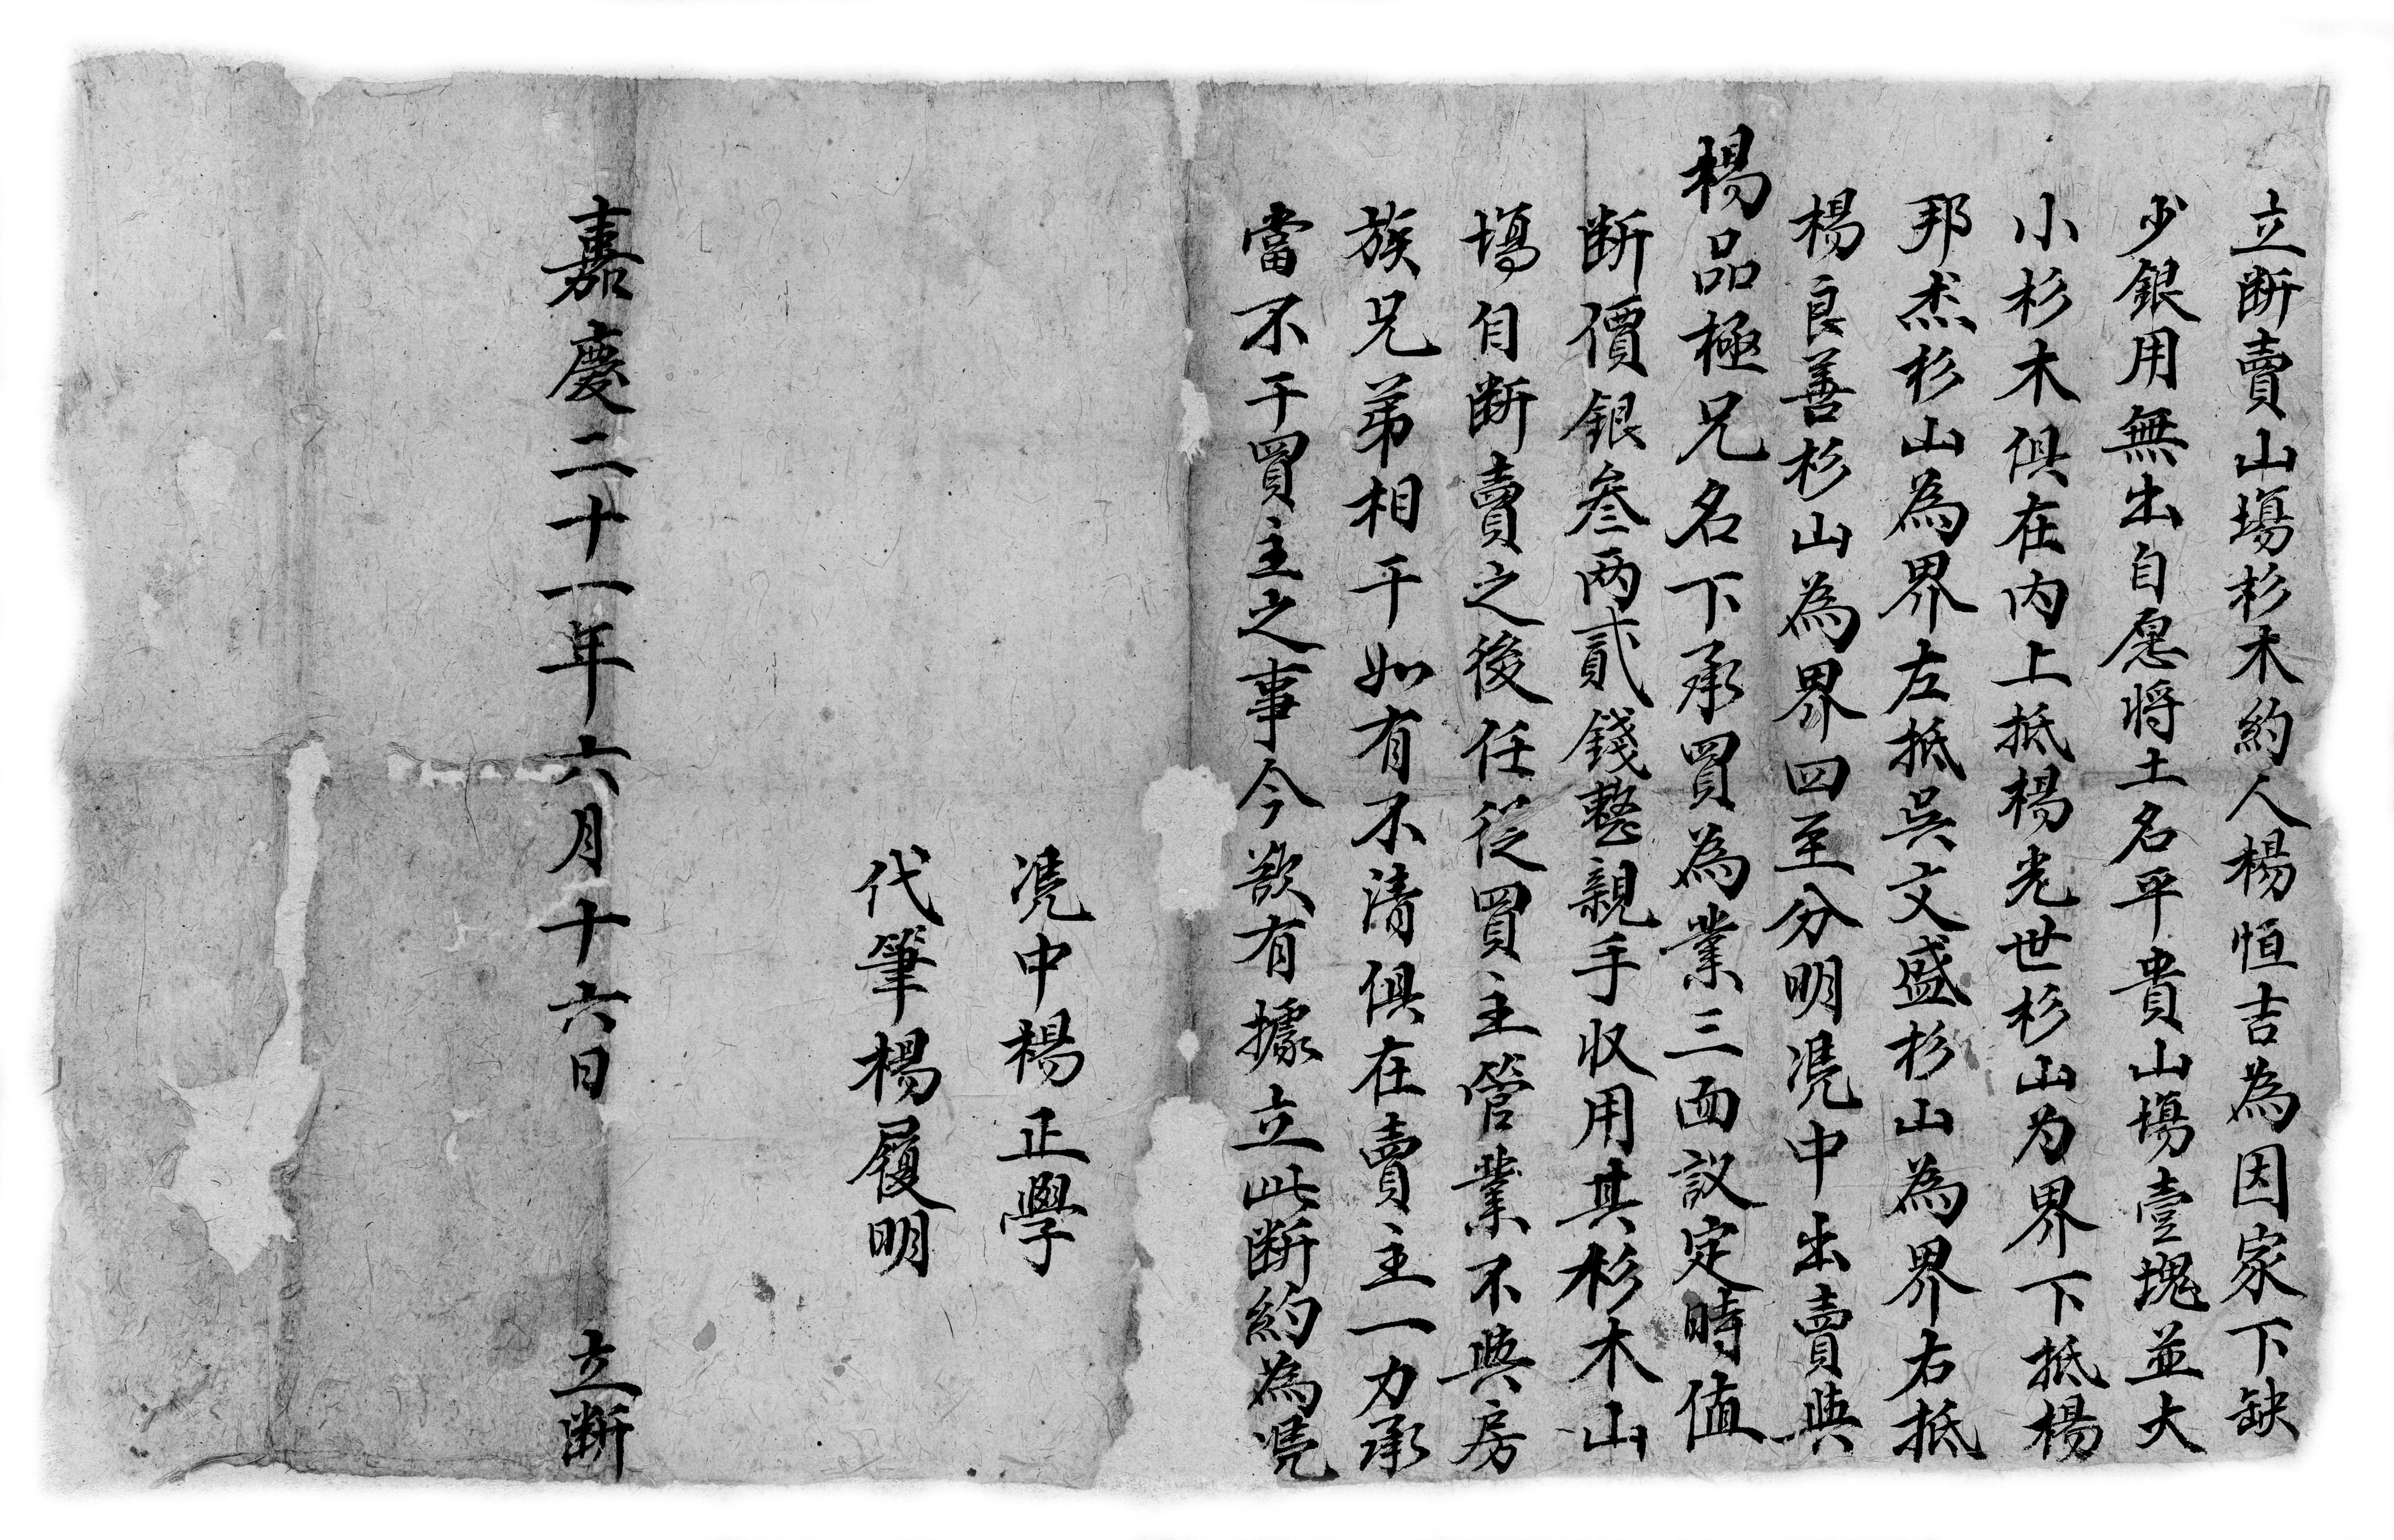 立断賣山塲杉木約人楊恒吉為因家下缺
少銀用無出自愿将土名平貴山塲壹塊並大
小杉木俱在内上抵楊光世杉山为界下抵楊
邦杰杉山為界左抵吳文盛杉山為界右抵
楊良善杉山為界四至分明凴中出賣與
楊品極兄名下承買為業三面議定時值
断價銀叁两貳錢整親手收用其杉木山
塲自断賣之後任從買主管業不與房
族兄弟相干如有不清俱在賣主一力承
當不干買主之事今欲有據立此断約為凴
凴中楊正學
代筆楊履明
嘉慶二十一年六月十六日 立断